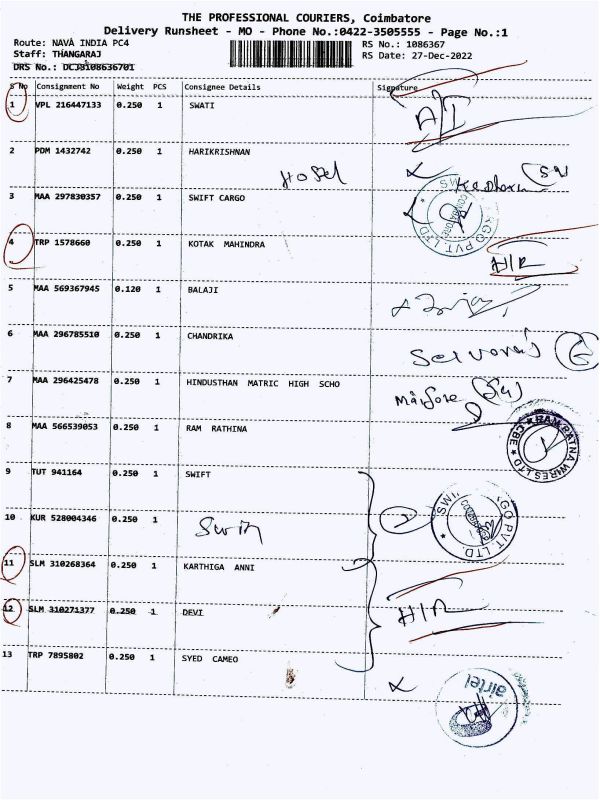 THE PROFESSIONAL COURIERS, Coimbatore
Delivery Runsheet - MO - Phone No.:0422-3505555 - Page No.:1
Route: NAVA INDIA PC4
RS No.: 1086367
Staff: THANGARAJ
RS Date: 27-Dec-2022
DRS No.: DCJ8108636701
S No Consignment No Weight PCS Consignee Details Signature
1 VPL 216447133 0.250 1 SWATI
2 PDM 1432742 0.250 1 HARIKRISHNAN
Hostel
3 MAA 297830357 0.250 1 SWIFT CARGO
4 TRP 1578660 0.250 1 KOTAK MAHINDRA
H/R
5 MAA 569367945 0.120 1 BALAJI
6 MAA 296785510 0.250 1 CHANDRIKA
7 MAA 296425478 0.250 1 HINDUSTHAN MATRIC HIGH SCHO
8 MAA 566539053 0.250 1 RAM RATHINA
RAM RATNA WIRES LTD
CBE
9 TUT 941164 0.250 1 SWIFT
10 KUR 528004346 0.250 1
Swift
11 SLM 310268364 0.250 1 KARTHIGA ANNI
12 SLM 310271377 0.250 1 DEVI
H/R
13 TRP 7895802 0.250 1 SYED CAMEO
airtel